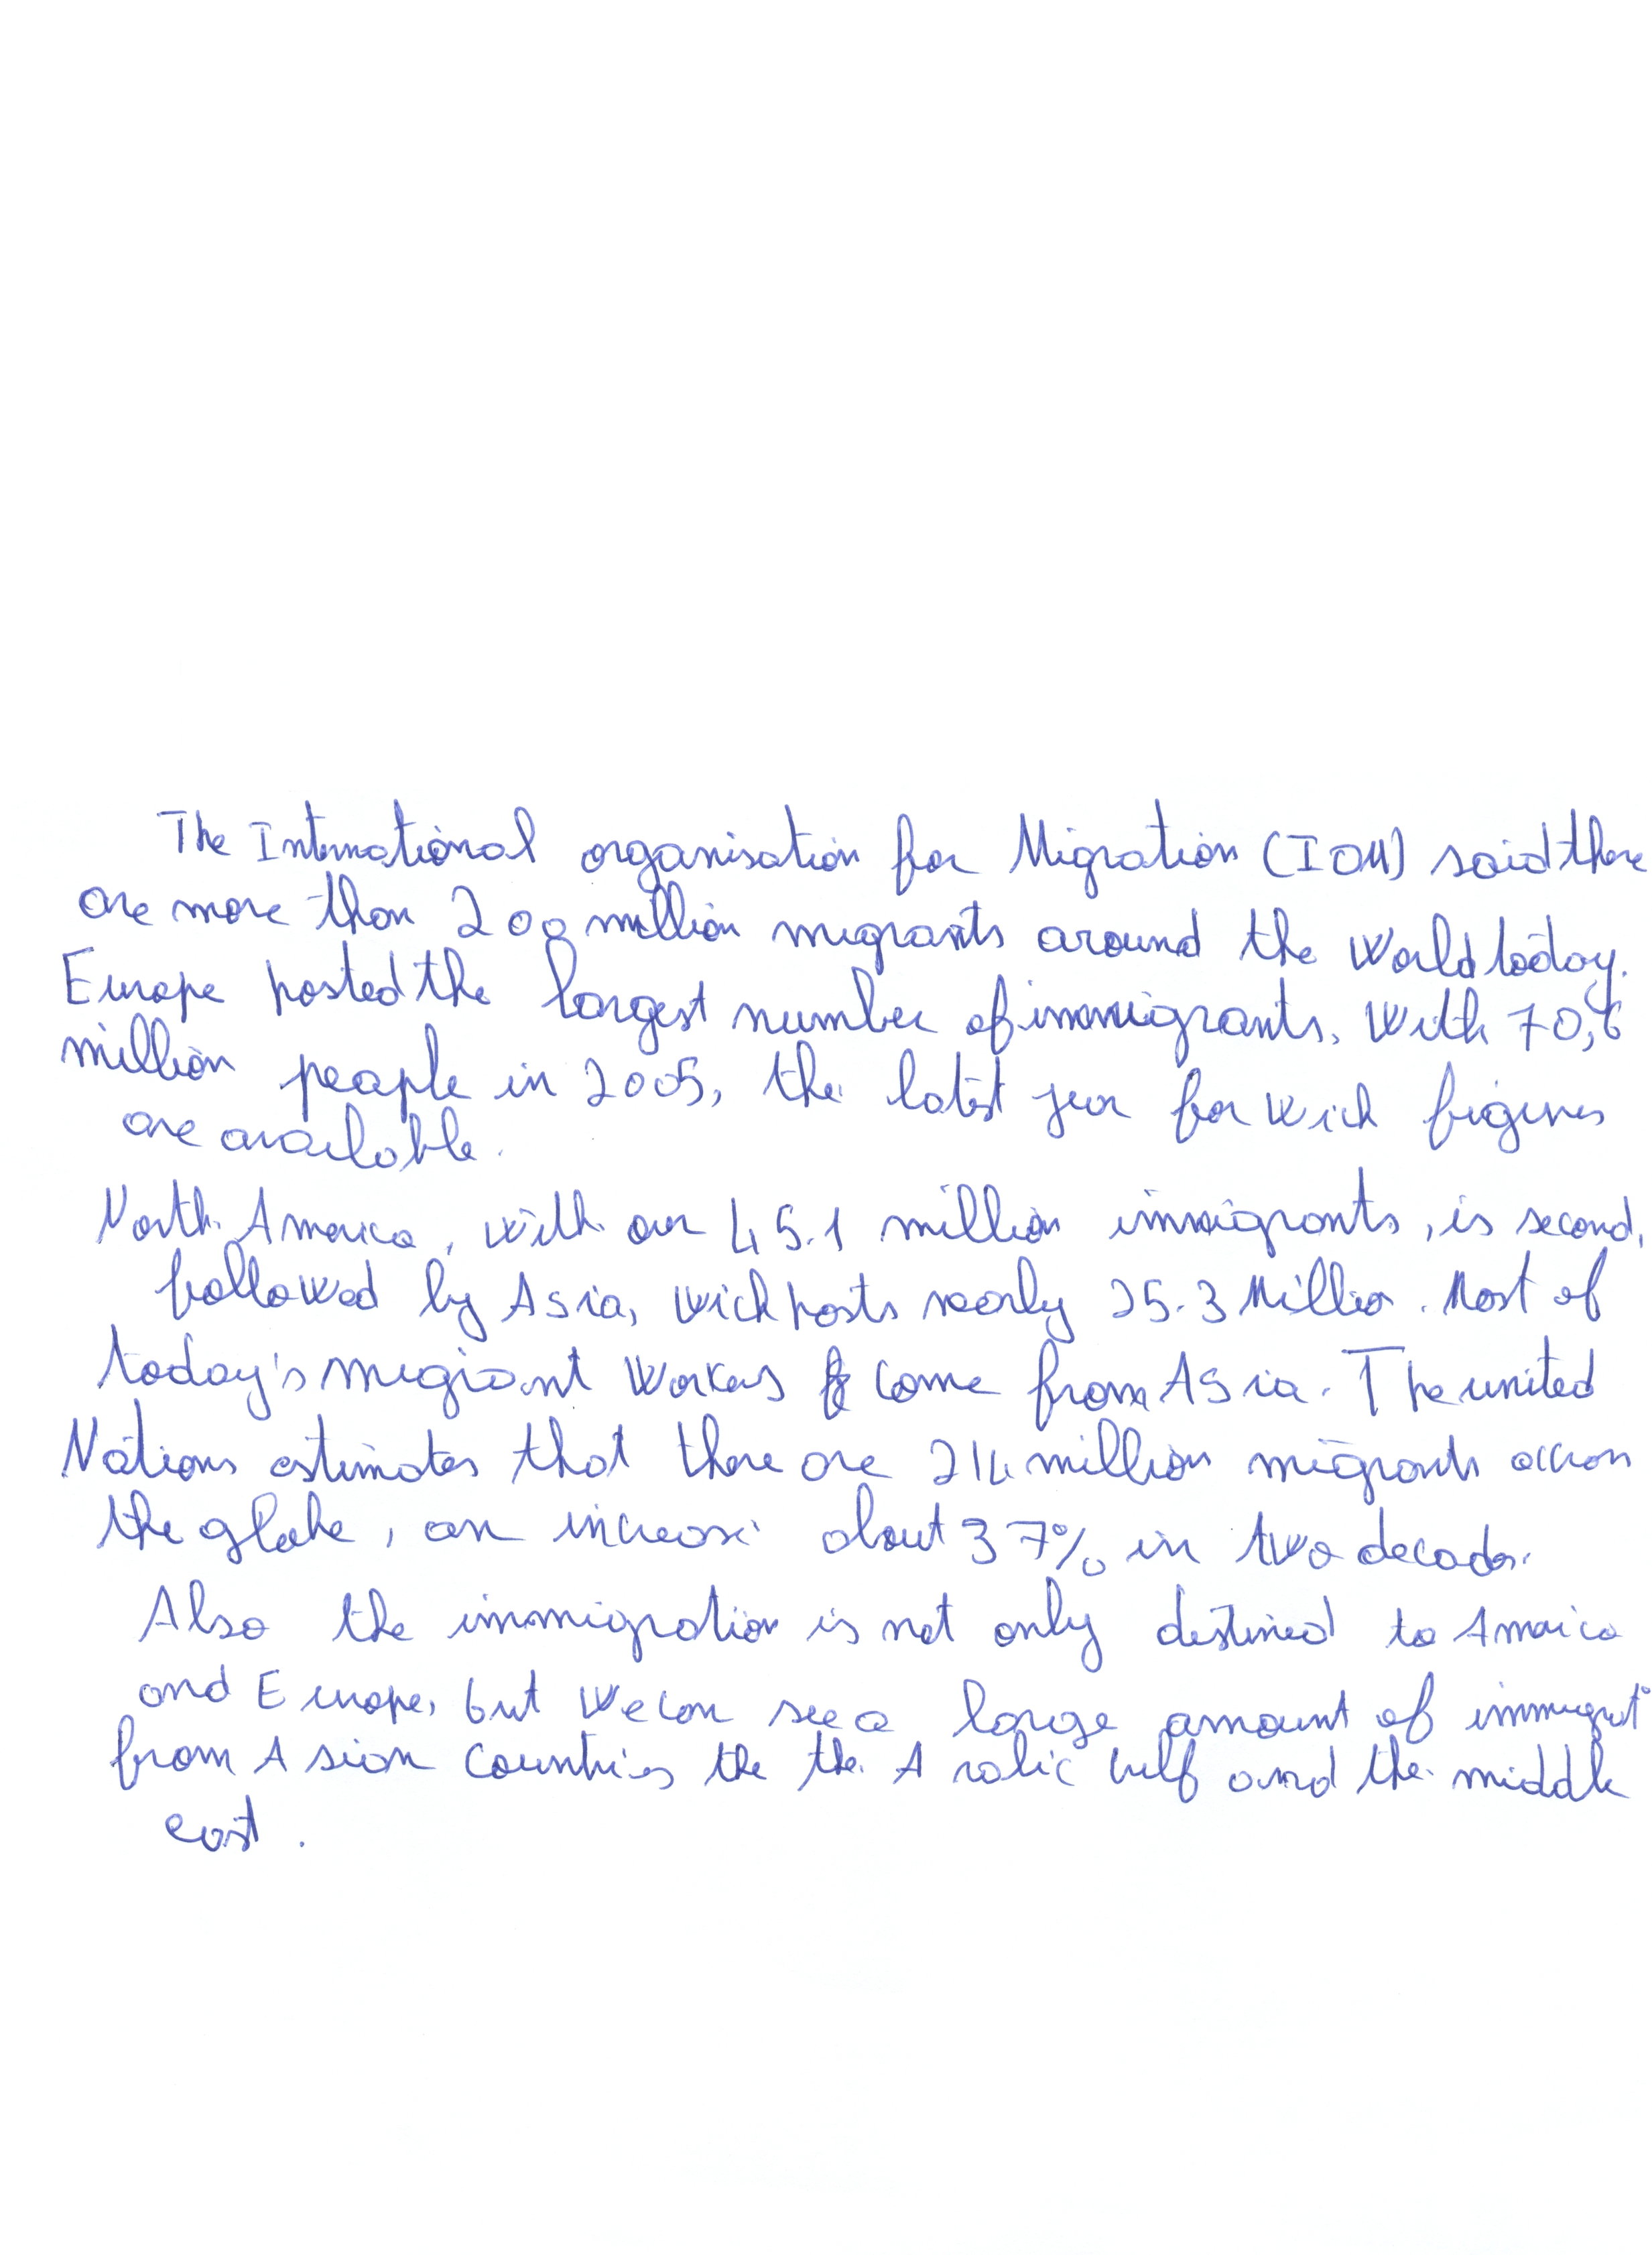 The International organisation for Migration (IOM) said there
are more than 200 million migrants around the world today.
Europe hosted the largest number of immigrants, with 70,6
million people in 2005, the latest year for wich figures
are available.
North America, with over 45.1 million immigrants, is second,
followed by Asia, wich hosts nearly 25.3 Million. Most of
today's migrant workers come from Asia. The united
Nations estimates that there are 214 million migrants across
the globe, an increase about 37% in two decades.
Also the immigration is not only destined to America
and Europe, but we can see a large amount of immigrat°
from Asian countries the the Arabic Gulf and the middle
east.